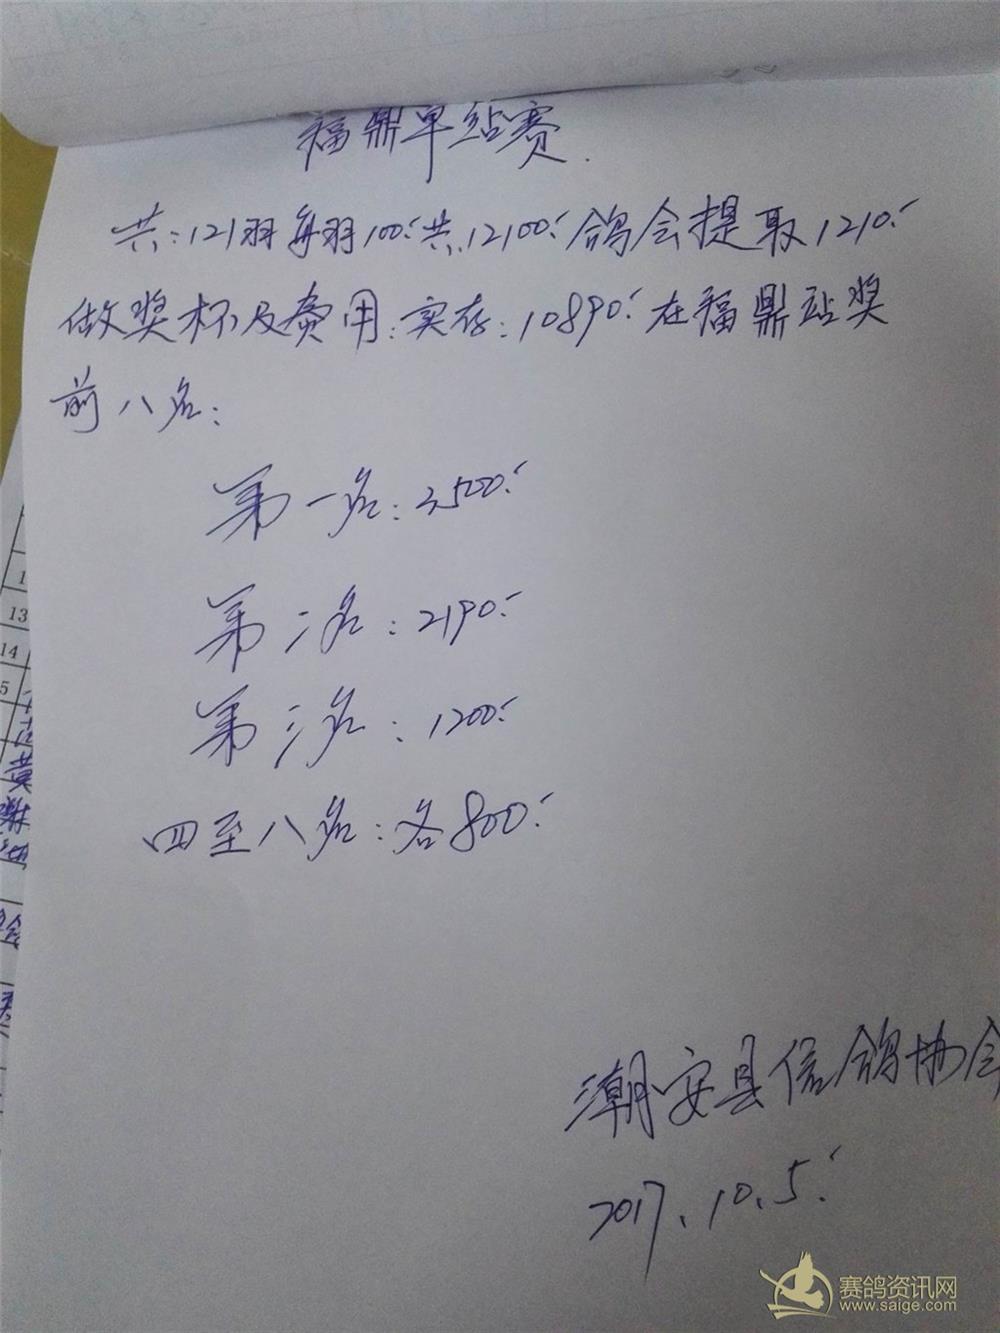 福鼎单站赛.
共:121羽每羽100.共.12100.鸽会提取1210.
做奖杯及费用:实存:10890.在福鼎站奖
前八名:
第一名:3500.
第二名:2190.
第三名:1200.
四至八名:各800.
潮安县信鸽协会
2017、10、5.
13
14
5
黄
谢
赛鸽资讯网
www.saige.com